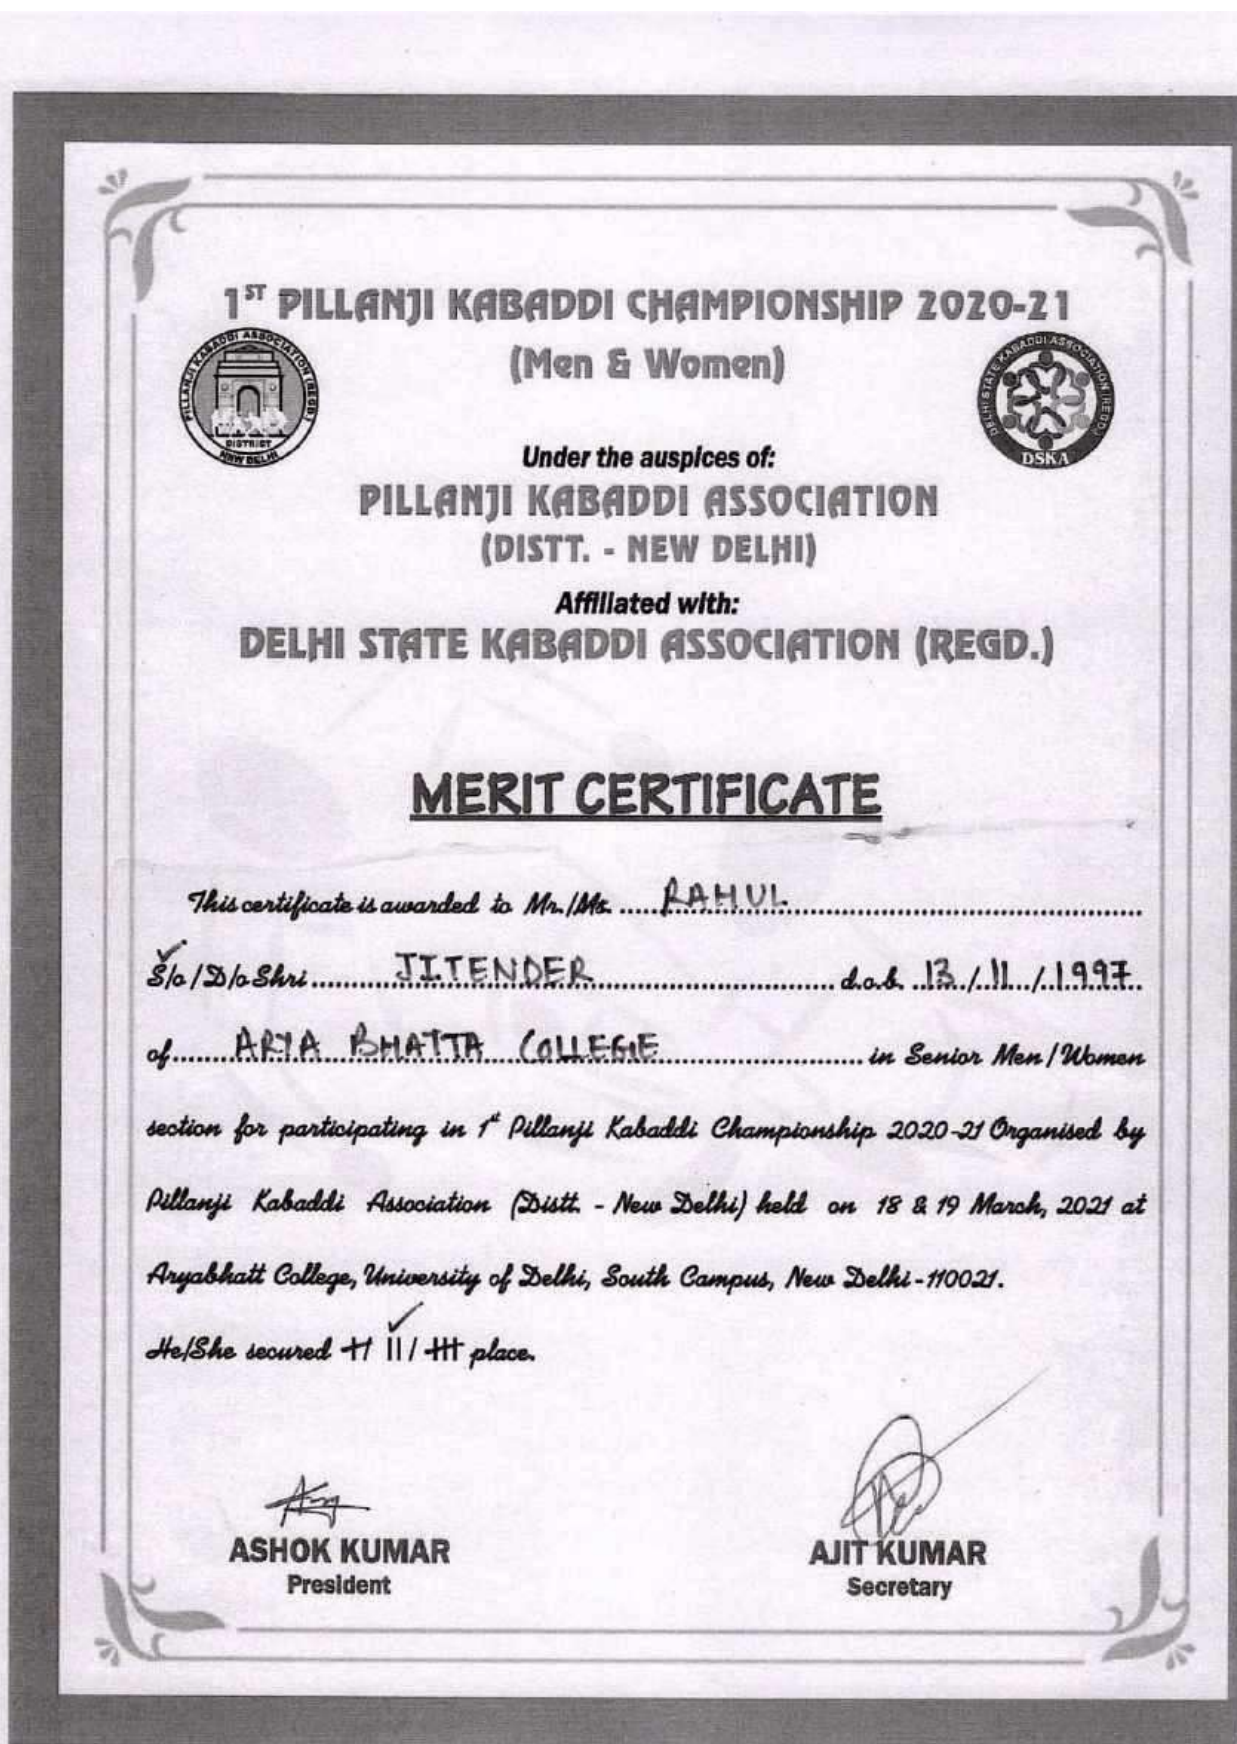 1ST PILLANJI KABADDI CHAMPIONSHIP 2020-21
(Men & Women)
PILLANJI KABADDI ASSOCIATION (REGD.)
DISTRICT
NEW DELHI
DELHI STATE KABADDI ASSOCIATION (REGD.)
DSKA
Under the auspices of:
PILLANJI KABADDI ASSOCIATION
(DISTT. - NEW DELHI)
Affiliated with:
DELHI STATE KABADDI ASSOCIATION (REGD.)
MERIT CERTIFICATE
This certificate is awarded to Mr./Ms. RAHUL
S/o / D/o Shri JITENDER d.o.b. 13/11/1997
of ARYA BHATTA COLLEGE in Senior Men / Women
section for participating in 1st Pillanji Kabaddi Championship 2020-21 Organised by
Pillanji Kabaddi Association (Distt. - New Delhi) held on 18 & 19 March, 2021 at
Aryabhatt College, University of Delhi, South Campus, New Delhi-110021.
He/She secured I/ II/ III place.
ASHOK KUMAR
President
AJIT KUMAR
Secretary